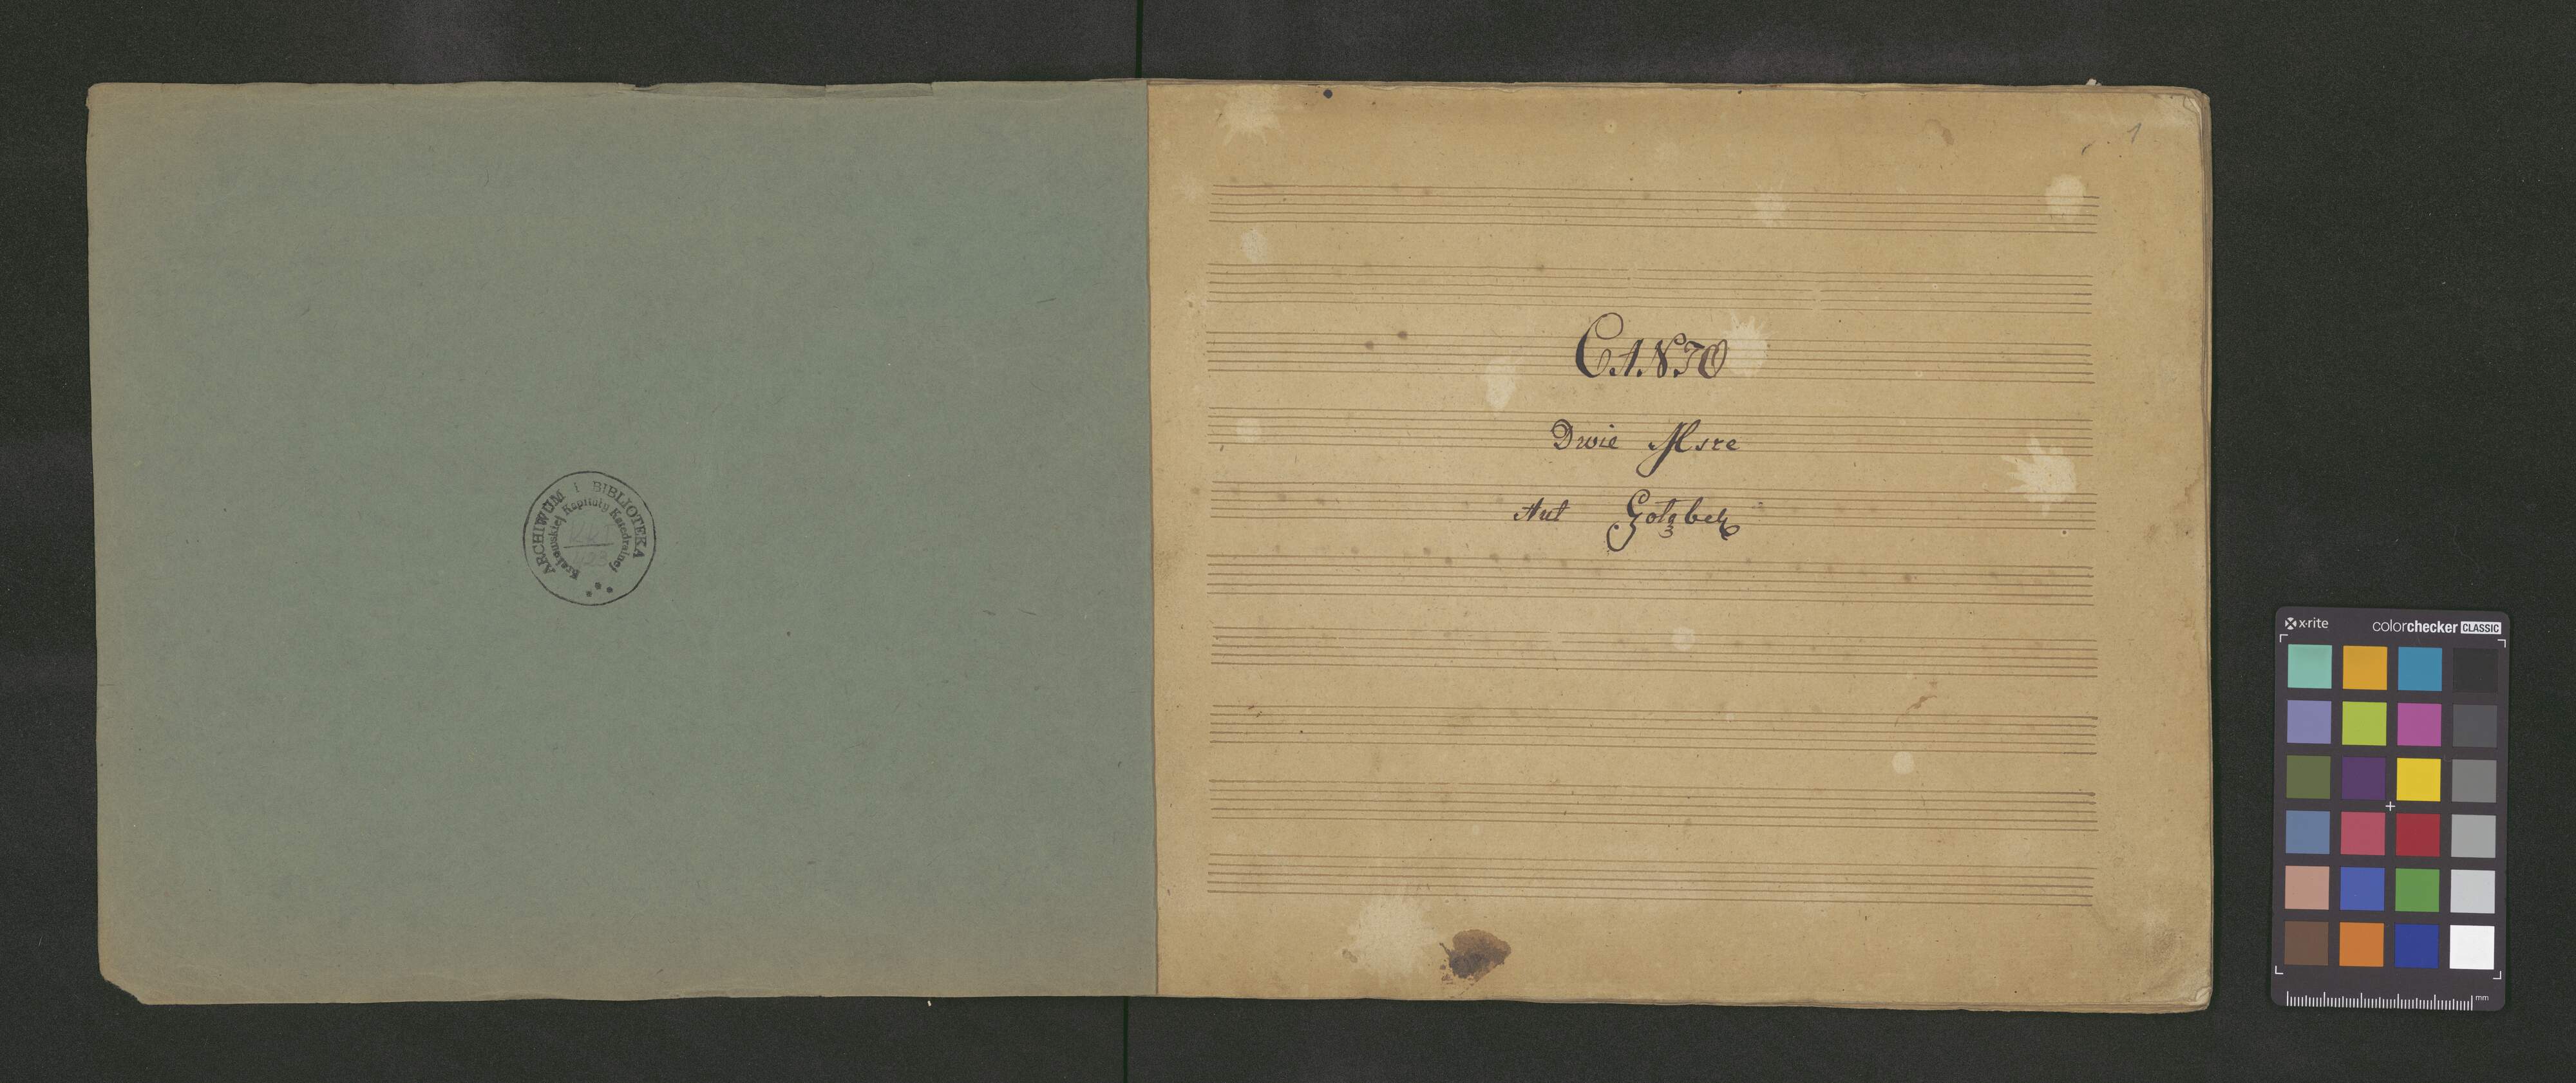 ARCHIWUM i BIBLIOTEKA
Krakowskiej Kapituły Katedralnej
1
CANTO
Dwie Msze
Aut Gołąbek
x·rite
colorchecker CLASSIC
mm